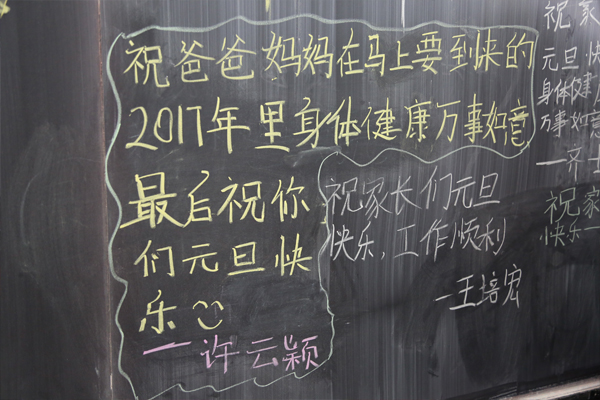 祝爸爸妈妈在马上要到来的
2017年里身体健康万事如意
最后祝你
们元旦快
乐
一许云颖
祝家长们元旦
快乐,工作顺利
一王培宏
祝家
元旦快
身体健
万事如意
一齐士
祝家
快乐一